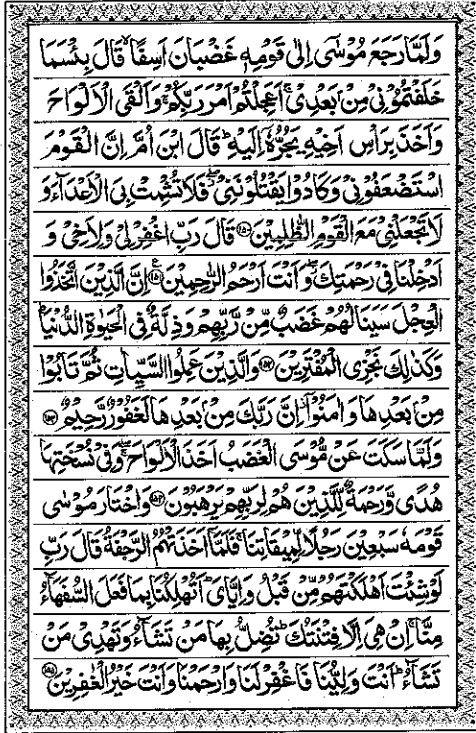 وَلَمَّا رَجَعَ مُوْسٰۤى اِلٰى قَوْمِهٖ غَضْبَانَ اَسِفًا ۙ قَالَ بِئْسَمَا
خَلَفْتُمُوْنِيْ مِنْۢ بَعْدِيْ ۚ اَعَجِلْتُمْ اَمْرَ رَبِّكُمْ ۚ وَاَلْقَى الْاَلْوَاحَ
وَاَخَذَ بِرَاْسِ اَخِيْهِ يَجُرُّهٗۤ اِلَيْهِ ؕ قَالَ ابْنَ اُمَّ اِنَّ الْقَوْمَ
اسْتَضْعَفُوْنِيْ وَكَادُوْا يَقْتُلُوْنَنِيْ ۖ فَلَا تُشْمِتْ بِيَ الْاَعْدَآءَ وَ
لَا تَجْعَلْنِيْ مَعَ الْقَوْمِ الظّٰلِمِيْنَ ۝۱۵۰ قَالَ رَبِّ اغْفِرْ لِيْ وَلِاَخِيْ وَ
اَدْخِلْنَا فِيْ رَحْمَتِكَ ۖ وَاَنْتَ اَرْحَمُ الرّٰحِمِيْنَ ۝۱۵۱ اِنَّ الَّذِيْنَ اتَّخَذُوا
الْعِجْلَ سَيَنَالُهُمْ غَضَبٌ مِّنْ رَّبِّهِمْ وَذِلَّةٌ فِي الْحَيٰوةِ الدُّنْيَا ؕ
وَكَذٰلِكَ نَجْزِي الْمُفْتَرِيْنَ ۝۱۵۲ وَالَّذِيْنَ عَمِلُوا السَّيِّاٰتِ ثُمَّ تَابُوْا
مِنْۢ بَعْدِهَا وَاٰمَنُوْۤا ۫ اِنَّ رَبَّكَ مِنْۢ بَعْدِهَا لَغَفُوْرٌ رَّحِيْمٌ ۝۱۵۳
وَلَمَّا سَكَتَ عَنْ مُّوْسَى الْغَضَبُ اَخَذَ الْاَلْوَاحَ ۖ وَفِيْ نُسْخَتِهَا
هُدًى وَّرَحْمَةٌ لِّلَّذِيْنَ هُمْ لِرَبِّهِمْ يَرْهَبُوْنَ ۝۱۵۴ وَاخْتَارَ مُوْسٰى
قَوْمَهٗ سَبْعِيْنَ رَجُلًا لِّمِيْقَاتِنَا ۚ فَلَمَّاۤ اَخَذَتْهُمُ الرَّجْفَةُ قَالَ رَبِّ
لَوْ شِئْتَ اَهْلَكْتَهُمْ مِّنْ قَبْلُ وَاِيَّايَ ؕ اَتُهْلِكُنَا بِمَا فَعَلَ السُّفَهَآءُ
مِنَّا ۚ اِنْ هِيَ اِلَّا فِتْنَتُكَ ؕ تُضِلُّ بِهَا مَنْ تَشَآءُ وَتَهْدِيْ مَنْ
تَشَآءُ ؕ اَنْتَ وَلِيُّنَا فَاغْفِرْ لَنَا وَارْحَمْنَا وَاَنْتَ خَيْرُ الْغٰفِرِيْنَ ۝۱۵۵